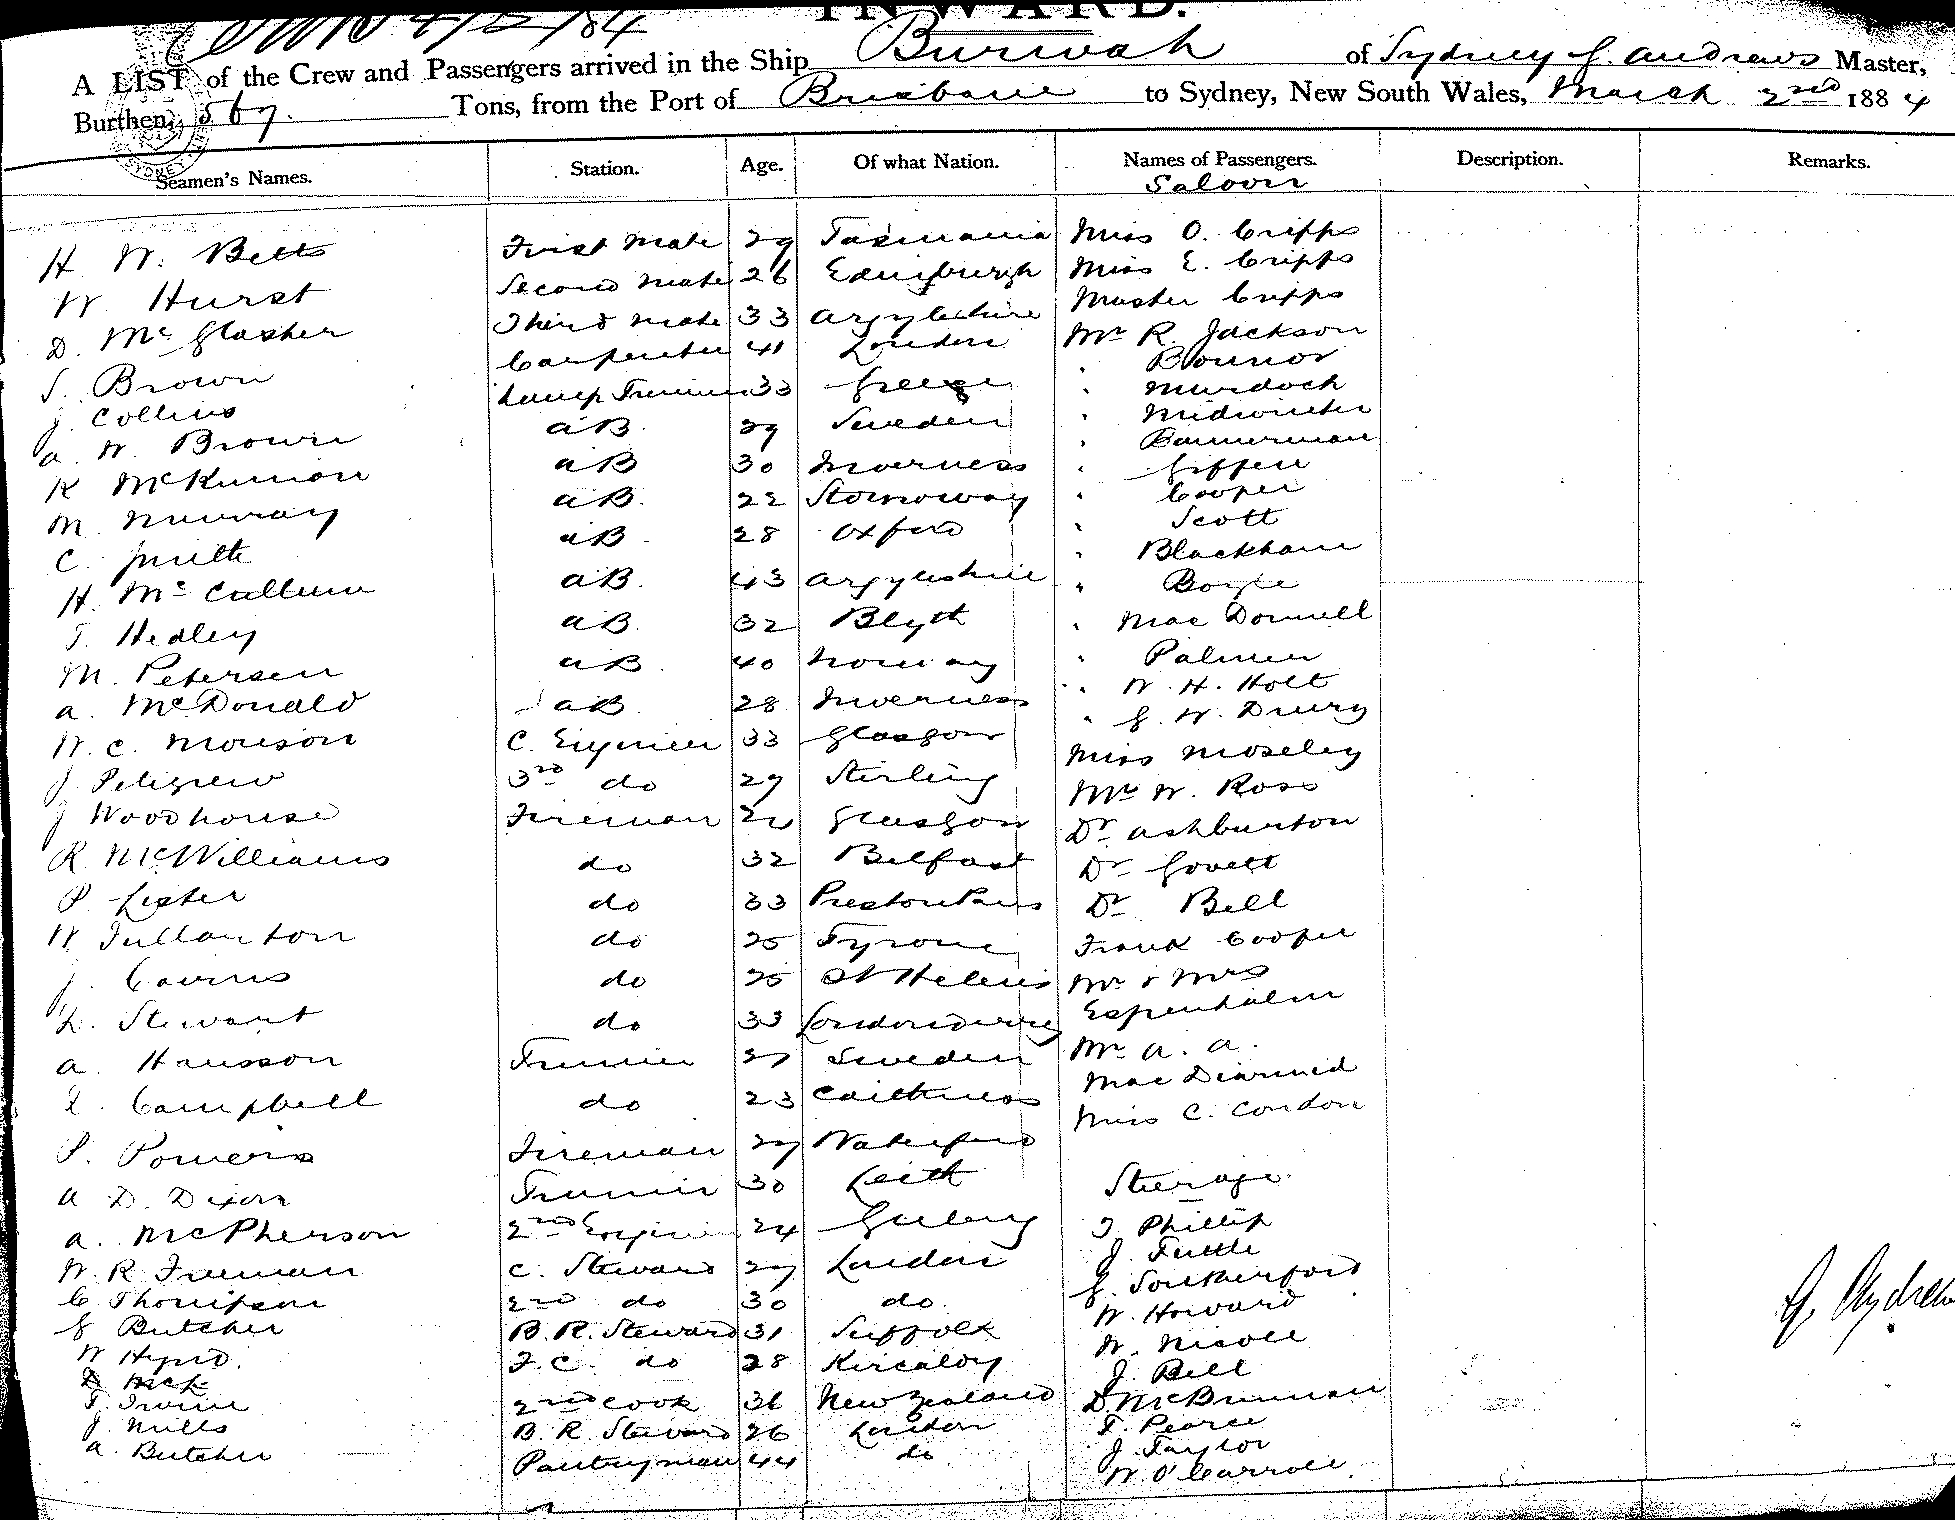 INWARD.
A LIST of the Crew and Passengers arrived in the Ship Burwah of Sydney G. Andrews Master,
Burthen, 567. Tons, from the Port of Brisbane to Sydney, New South Wales, March 2nd 1884
Seamen's Names. Station. Age. Of what Nation. Names of Passengers. Description. Remarks.
Saloon
H. W. Betts First Mate 29 Tasmania Miss O. Cripps
W Hurst Second Mate 26 Edinburgh Miss E. Cripps
D. Mc Glasher Third Mate 33 Argyleshire Master Cripps
S. Brown Carpenter 41 London Mr R. Jackson
J. Collins Lamp Trimmer 33 Greece " Bonnor
a. W. Brown aB. 29 Sweden " Murdoch
K McKinnon aB 30 Inverness " Midwinter
M. Murray aB. 22 Stornoway " Bannerman
C. Smith aB. 28 Oxford " Giffen
H. Mc Callum aB. 43 Argyleshire " Cooper
T. Hedley aB. 32 Blyth " Scott
M. Petersen aB. 40 Norway " Blackham
a. McDonald aB. 28 Inverness " Boyle
W. C. Monson C. Engineer 33 Glasgow " Mac Donnell
J. Petigrew 3rd do 29 Stirling " Palmer
J Woodhouse Fireman Glasgow " W. H. Holt
R. McWilliams do 32 Belfast " G. W. Drury
P. Lester do 33 PrestonPans Miss Moseley
W. Fullanton do 25 Tyrone Mr W. Ross
J. Cairns do 25 St Helens Dr Ashburton
Stewart do 33 Londonderry Dr Govett
a. Hansson Trimmer Sweden Dr Bell
Campbell do 23 Caithness Frank Cooper
P. Powers Fireman 29 Waterford Mr & Mrs
a D. Dixon Trimmer 30 Leith Espenhalm
a. McPherson 2nd Engin 24 Geelong Mr a. a.
W. R Freeman C. Steward 29 London Mac Diarmid
C Thompson 2nd do 30 do. Miss C. Condon
G Butcher B. R. Steward 31 Suffolk Steerage.
W Hynd. F. C. do 28 Kircaldy T Phillip
T. Irvine 2nd Cook 36 New Zealand J. Tuttle
J. Mills B. R. Steward 26 London G. Southerford
a. Butcher Pantryman 44 do W. Howard
W. Nicoll
J. Bell
D McBrinnan
T. Pearce
J. Taylor
W. O'Carroll.